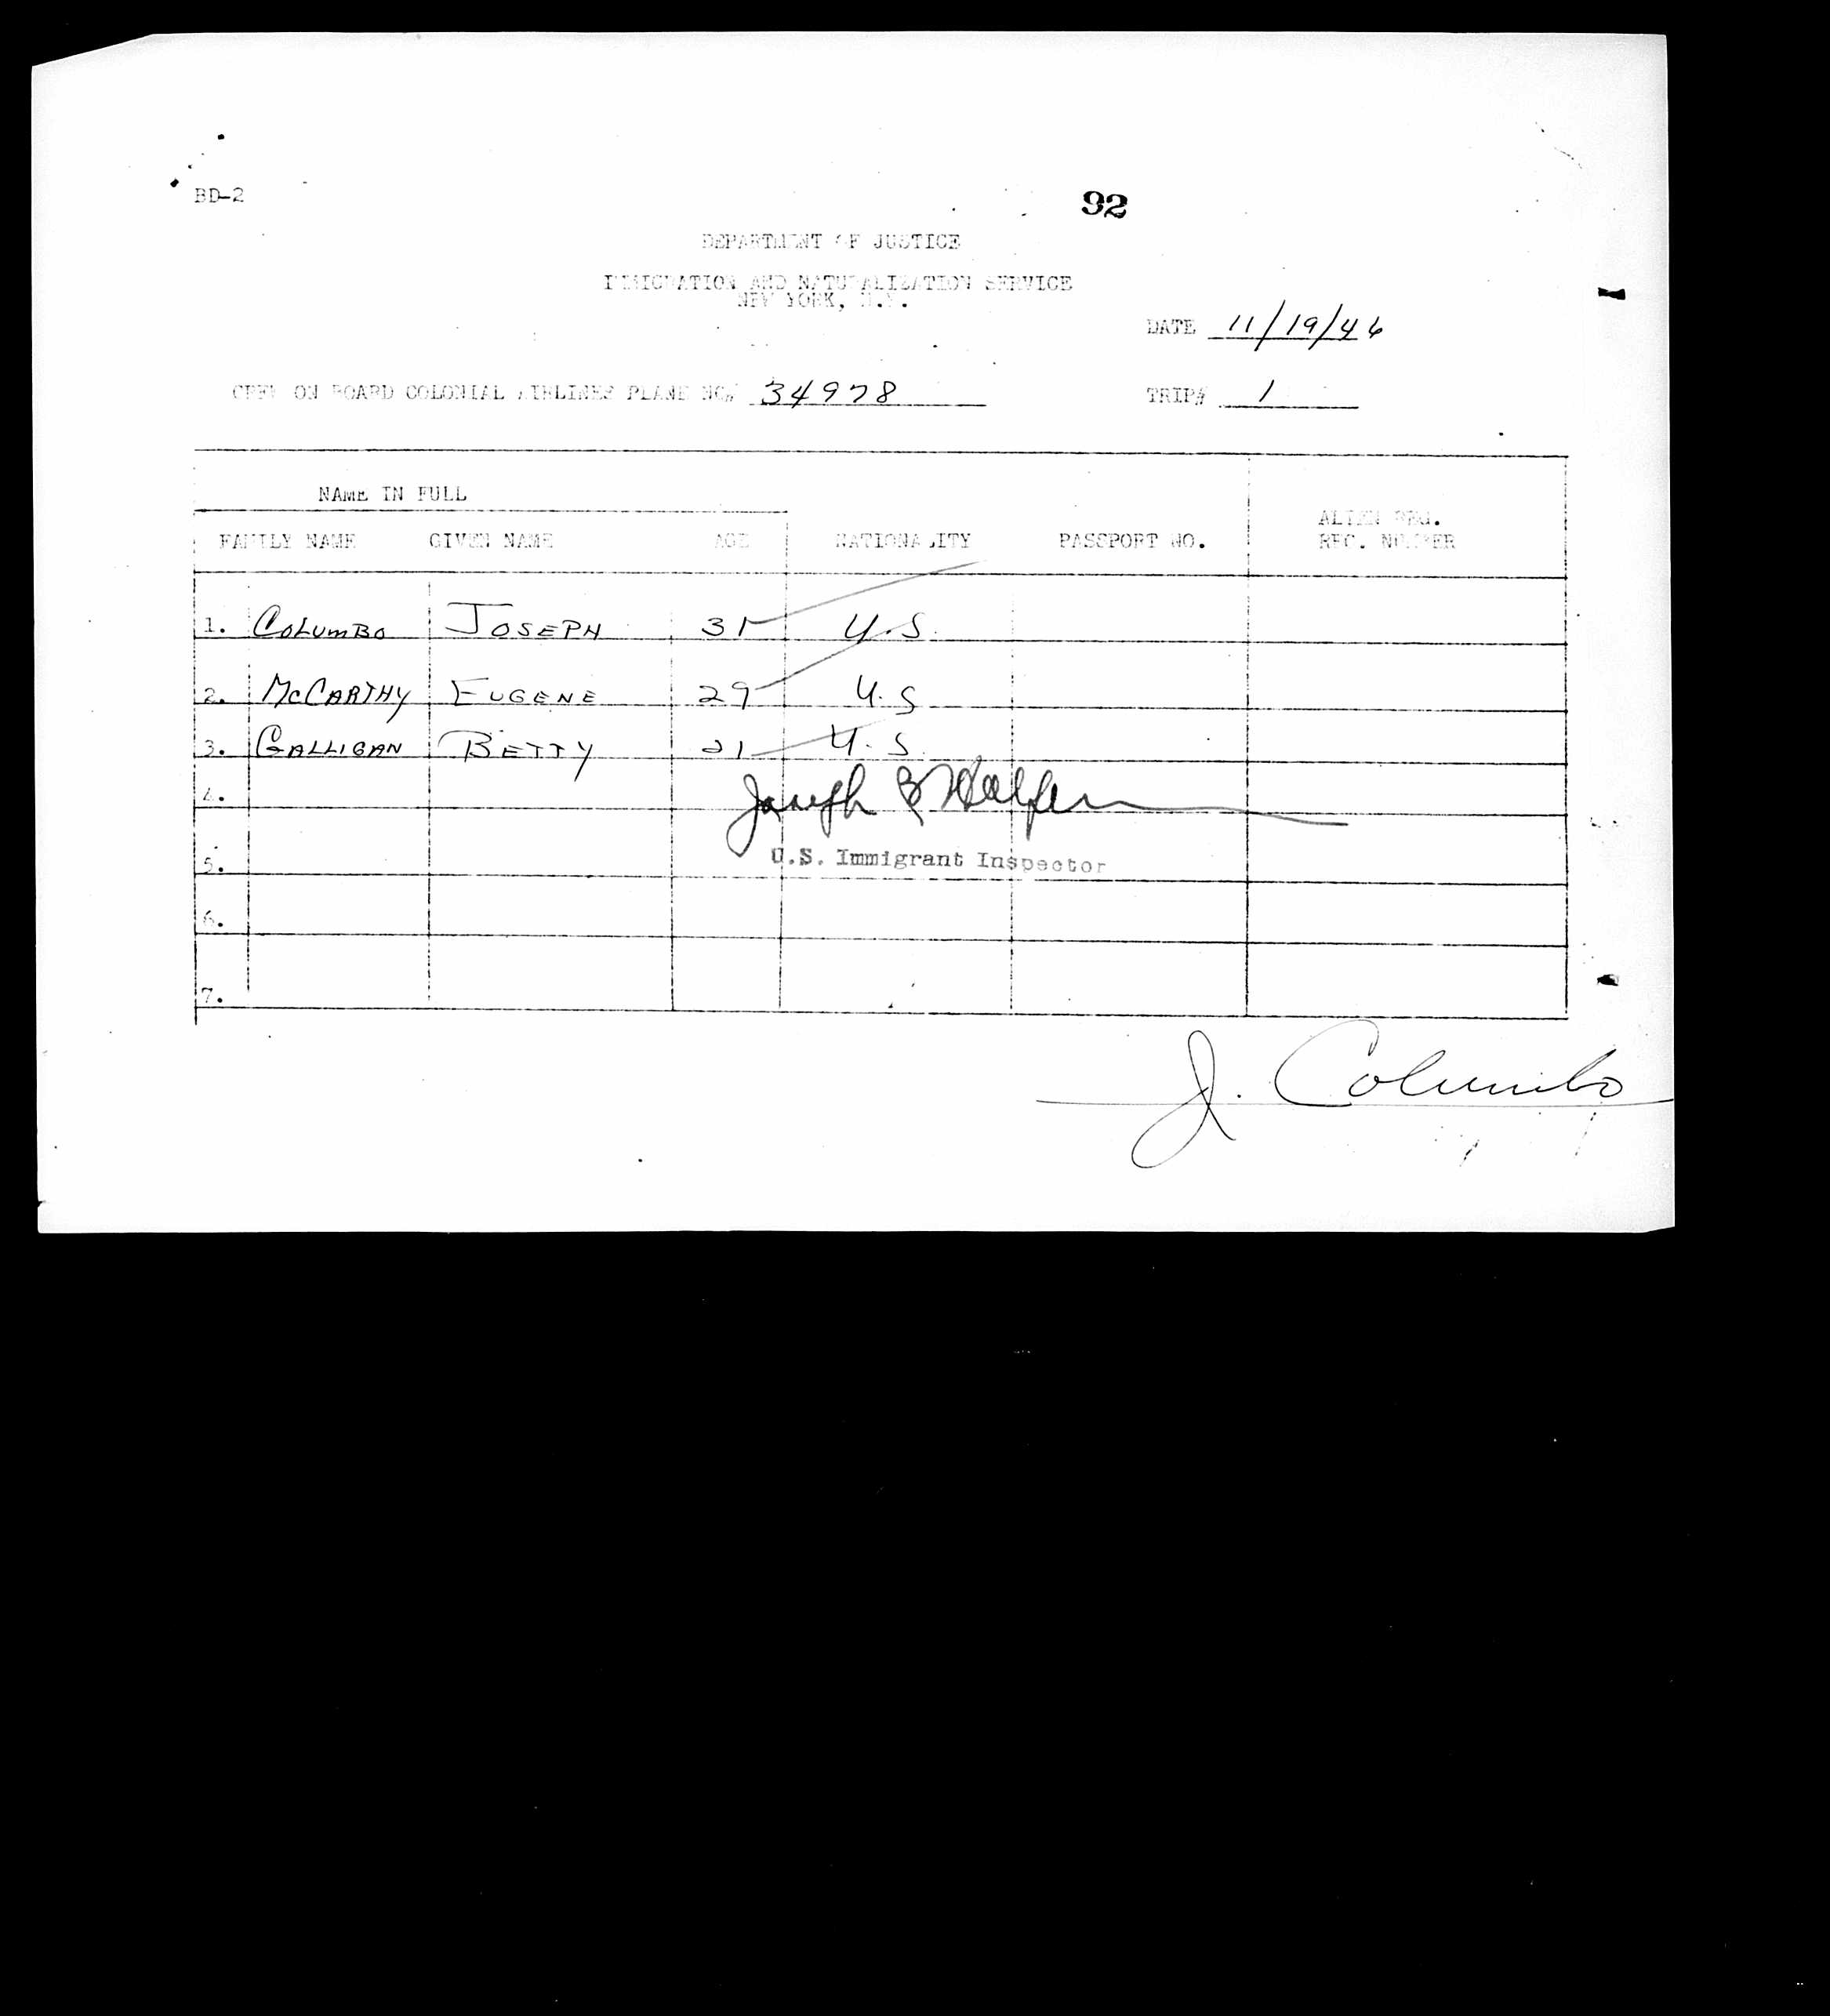 BD-2
92
DEPARTMENT OF JUSTICE
IMMIGRATION AND NATURALIZATION SERVICE
NEW YORK, N.Y.
DATE 11/19/46
CREW ON BOARD COLONIAL AIRLINES PLANE NO. 34978 TRIP# 1
NAME IN FULL
FAMILY NAME GIVEN NAME AGE NATIONALITY PASSPORT NO. ALIEN REG. REC. NUMBER
1. COLUMBO JOSEPH 31 U.S.
2. MCCARTHY EUGENE 29 U.S
3. GALLIGAN BETTY 21 U.S.
4. Joseph
5. U.S. Immigrant Inspector
6.
7.
J. Columbo